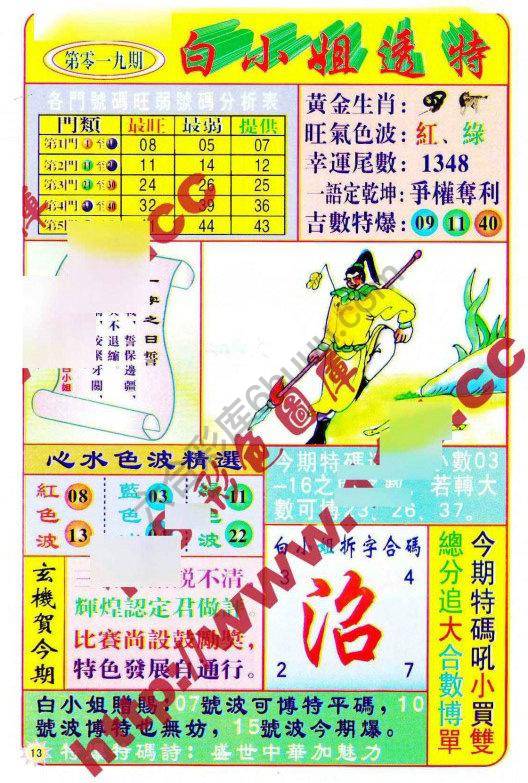 第零一九期
白小姐透特
各門號碼旺弱號碼分析表
門類 最旺 最弱 提供
第1門 08 05 07
第2門 11 14 12
第3門 24 26 25
第4門 32 39 36
第5門 41 44 43
黃金生肖：
旺氣色波：紅、綠
幸運尾數：1348
一語定乾坤：爭權奪利
吉數特爆：09 11 40
誓保邊疆，
不退縮。
咬緊牙關，
白小姐
心水色波精選
紅色波 08 13
藍色 03
波 11 22
今期特碼 小數03
-16之 若轉大
數可博23、26、37。
玄機賀今期
說不清
輝煌認定君做詩。
比賽尚設鼓勵獎，
特色發展自通行。
白小姐拆字合碼
3 4
治
2 7
今期特碼吼小買雙
總分追大合數博單
白小姐贈賜：07號波可博特平碼，10
號波博特也無妨，15號波今期爆。
特碼詩：盛世中華加魅力
13